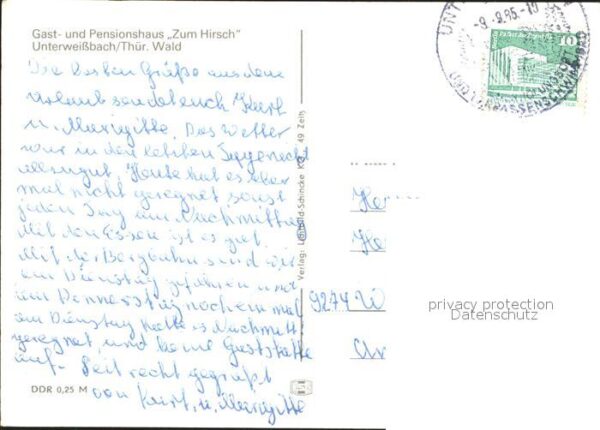 Gast- und Pensionshaus „Zum Hirsch"
Unterweißbach/Thür. Wald
Die besten Grüße aus dem
Urlaub sendet euch Kurt
u. Marigitte. Das Wetter
war in den letzten Tagen nicht
. Heute hat es aber
mal nicht geregnet sonst
jeden Tag am Nachmittag
Mit dem Essen ist es gut.
Mit der Bergbahn sind wir
am Dienstag gefahren und
am Donnerstag noch ein mal
am Dienstag hatte es Nachmitt
geregnet, und keine Gaststätte
auf. Seit recht gegrüßt
von Kurt, u. Marigitte
DDR 0,25 M
Verlag: Leopold-Schincke KG, 49 Zeitz
-9.-9.85.-10
UNT
UND TERRASSENSCHWIMMBAD
10
9274 W
privacy protection
Datenschutz